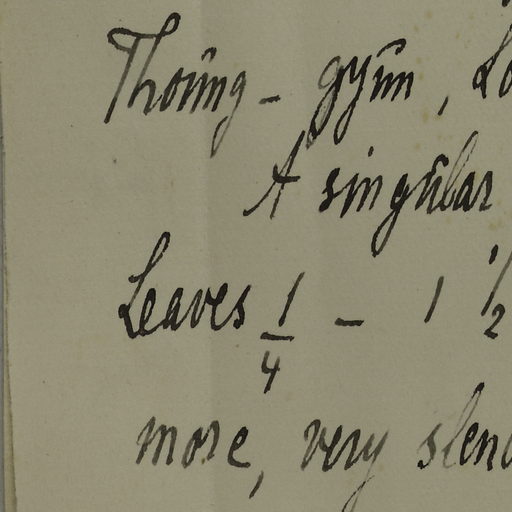 Thoūng - gyūn, Lo
A singūlar
Leaves 1/4 - 1 1/2
more, very slend